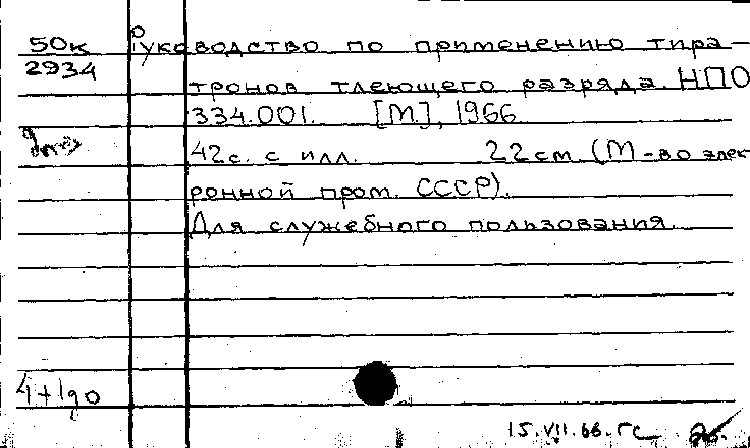 50к Руководство по применению тира-
2934 тронов тлеющего разряда. НПО
334.001. [М.], 1966.
42с. с илл. 22см. (М-во элек
ронной пром. СССР).
Для служебного пользования.
15.VII.66.